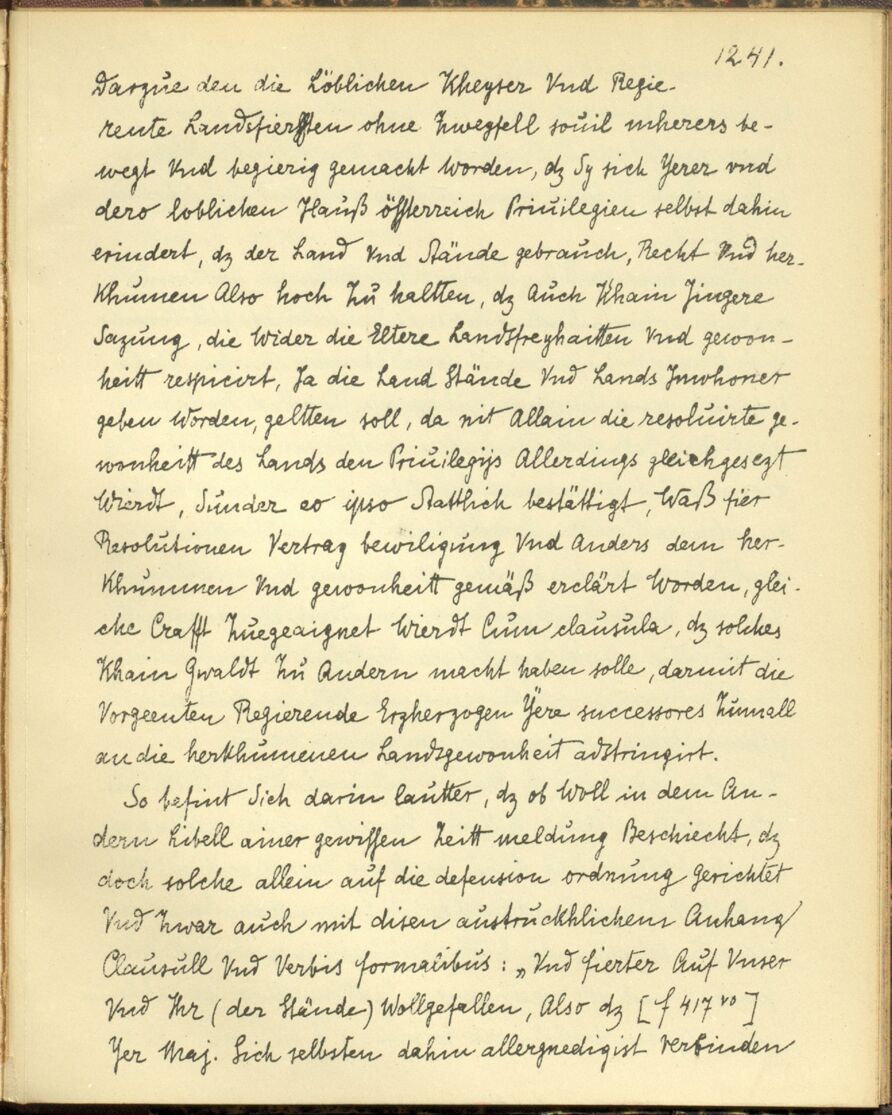 1241.
Darzue den die Löblichen Kheyser Vnd Regie-
rente Landsfierssten ohne Zwegfell souil mherers be-
wegt Vnd begierig gemacht Worden, dz Sy sich Yerer vnd
dero loblichen Hauß össterreich Priuilegien selbst dahin
erindert, dz der Land Vnd Stände gebrauch, Recht Vnd her-
khumen Also hoch Zu haltten, dz Auch Khain Jingere
Sazung, die Wider die Eltere Landtsfreyhaitten Vnd gewon-
heitt respicirt, Ja die Land Stände Vnd Lands Inwhoner
geben Worden, geltten soll, da nit Allain die resoluirte ge-
wonheitt des Lands den Priuilegijs Allerdings gleichgesezt
Wierdt, Sunder eo ipso Stattlich bestättigt, Waß fier
Resolutionen Vertrag bewiligung Vnd Anders dem her-
khummen Vnd gewonheitt gemäß erclärt Worden, glei-
che Crafft Zuegeaignet Wierdt Cum clausula, dz solches
Khain Gwaldt Zu Andern macht haben solle, darmit die
Vorgeenten Regierende Erzherzogen Yere successores Zumall
an die herkhumenen Landsgewonheit adstringirt.
So befint Sich darin lautter, dz ob Woll in dem An-
dern Libell ainer gewissen Zeitt meldung Beschiecht, dz
doch solche allein auf die defension ordnung Gerichtet
Vnd Zwar auch mit disen austruckhlichem Anhang
Clausull Vnd Verbis formalibus: „Vnd fierter Auf Vnser
Vnd Ihr (der Stände) Wollgefallen, Also dz [f 417 vo]
Yer Maj. Sich selbsten dahin allergnedigist Verbinden